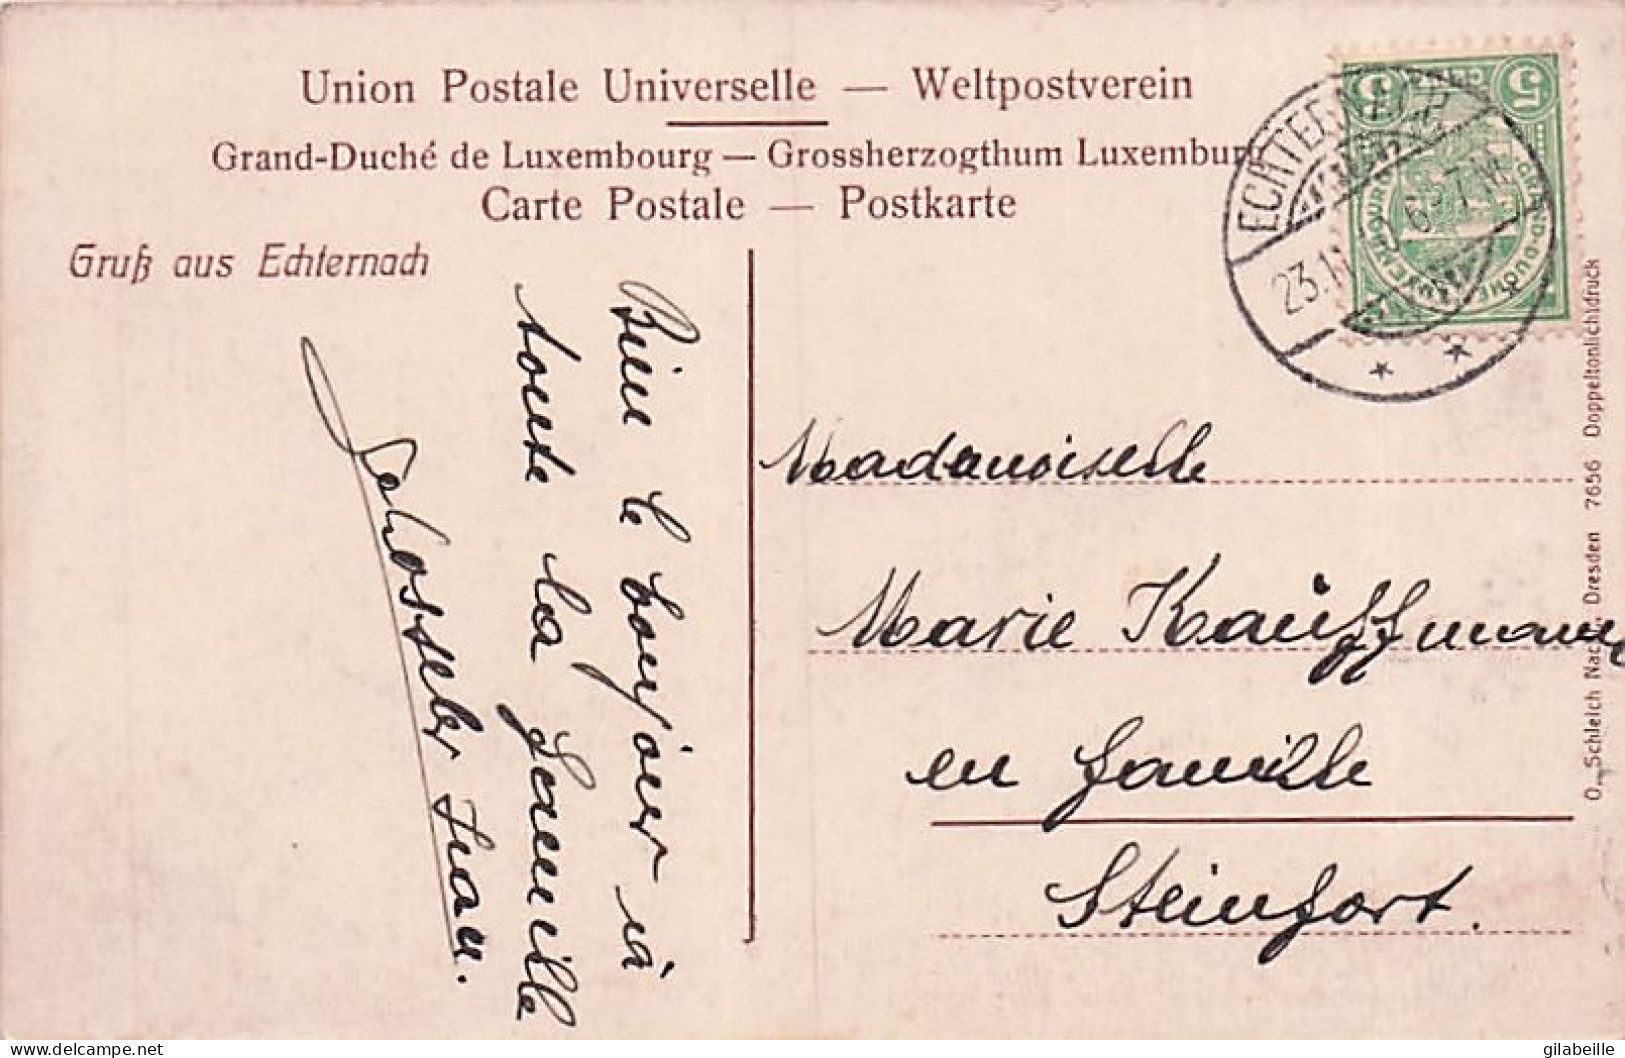 Union Postale Universelle — Weltpostverein
Grand-Duché de Luxembourg — Grossherzogthum Luxembur
Carte Postale — Postkarte
Gruß aus Echternach
Bien le bonjour à
toute la famille
ECHTERNACH
23.1
6-7 N
5 5
GRAND-DUCHE LUXEMBOURG
Mademoiselle
Marie Kauffmann
en famille
Steinfort.
O. Schleich Nachf. Dresden 7656 Doppeltonlichtdruck
delcampe.net
gilabeille